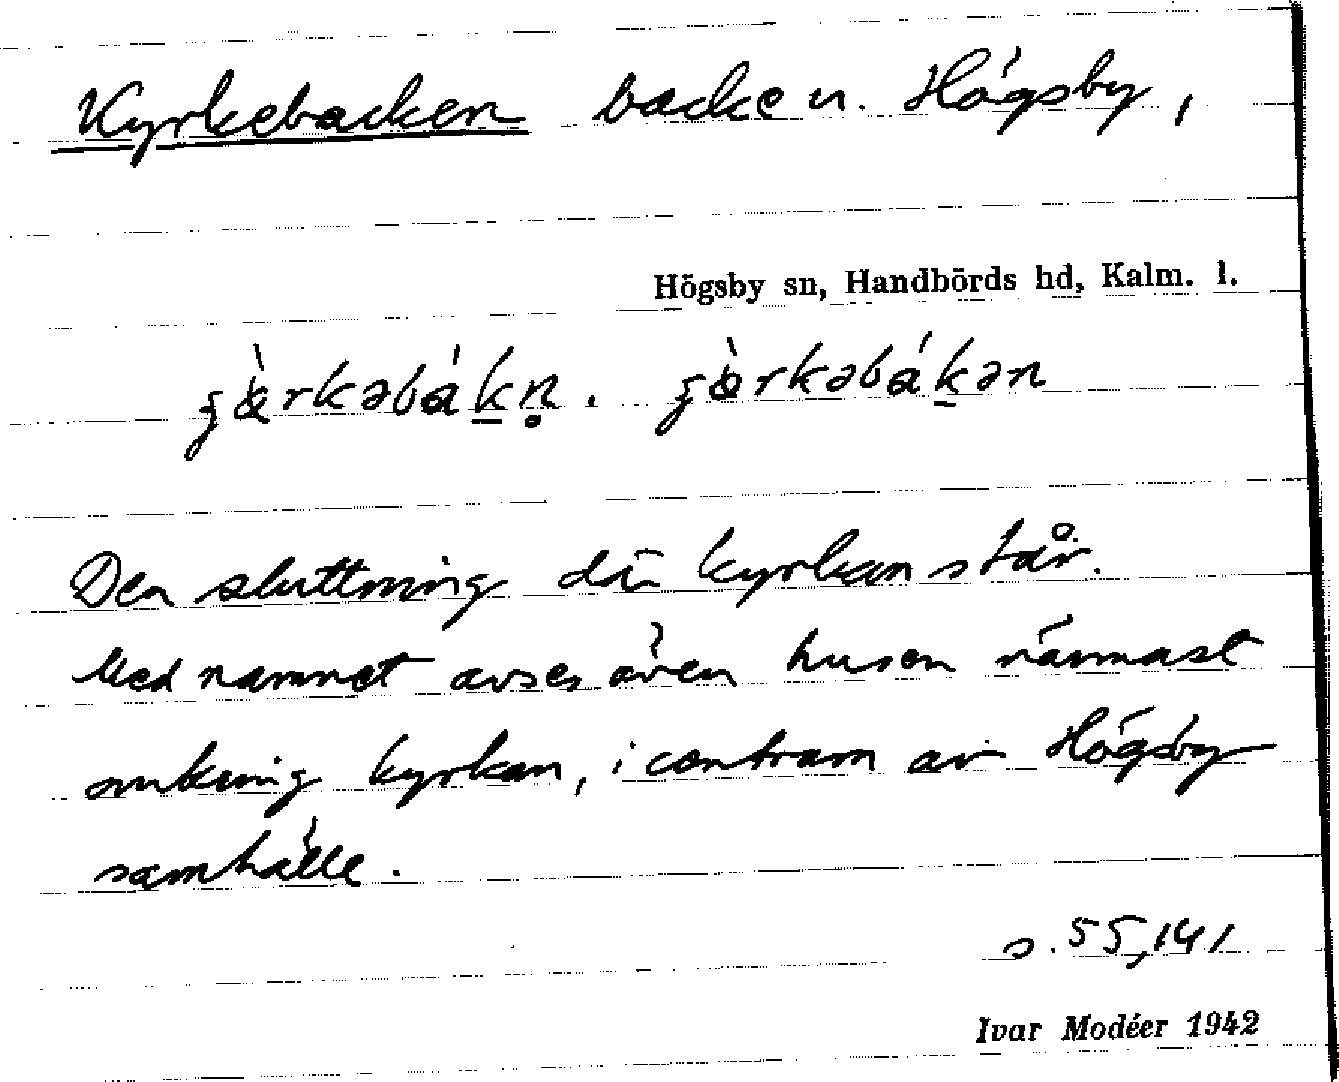 Kyrkebacken backe u. Högsby,
Högsby sn, Handbörds hd, Kalm. l.
Den sluttning där kyrkan står.
Med namnet avses även husen närmast
omkring kyrkan, i centrum av Högsby
samhälle.
s. 55, 141
Ivar Modéer 1942